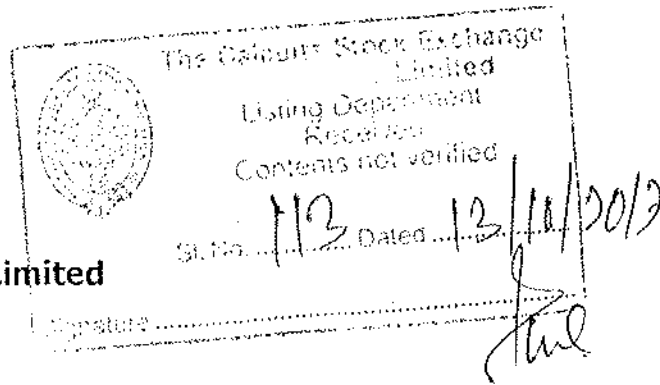 The Calcutta Stock Exchange
Limited
Listing Department
Received
Contents not verified
Sl. No. 113 Dated 13/11/201
Limited
Signature